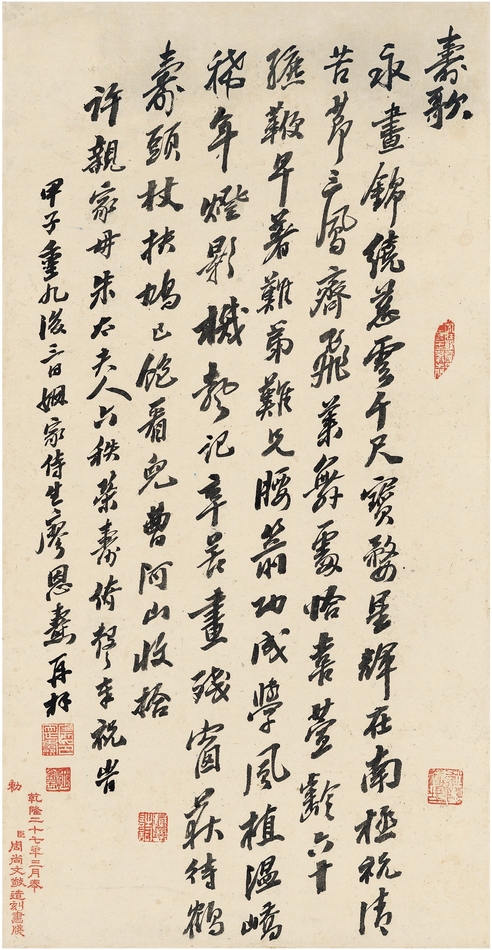 壽歌
永晝錦繞慈雲千尺寶婺星輝在南極祝清
苦節三鳳齊飛萊舞處恰喜萱齡六十
鞭早著難弟難兄腰功成學風植溫嶠
年燈影機聲記辛苦畫殘窗荻待鶴
壽頭杖扶鳩已飽看兒曹河山收拾
許親家母朱太夫人六秩榮壽倚聲奉祝
甲子重九後三日姻家侍生廖恩燾再拜
乾隆二十七年三月奉
勅
臣周尚文敬造刻畫牋